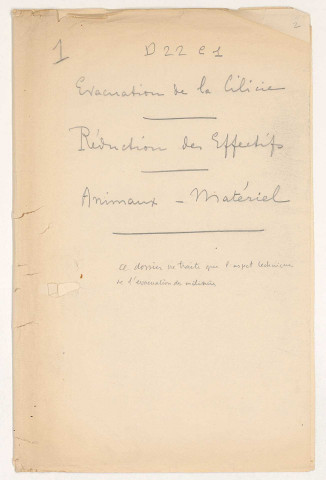 1
D 22 C 1
2
Evacuation de la Cilicie
Réduction des Effectifs
Animaux - Matériel
ce dossier ne traite que l'aspect technique
de l'évacuation des militaires